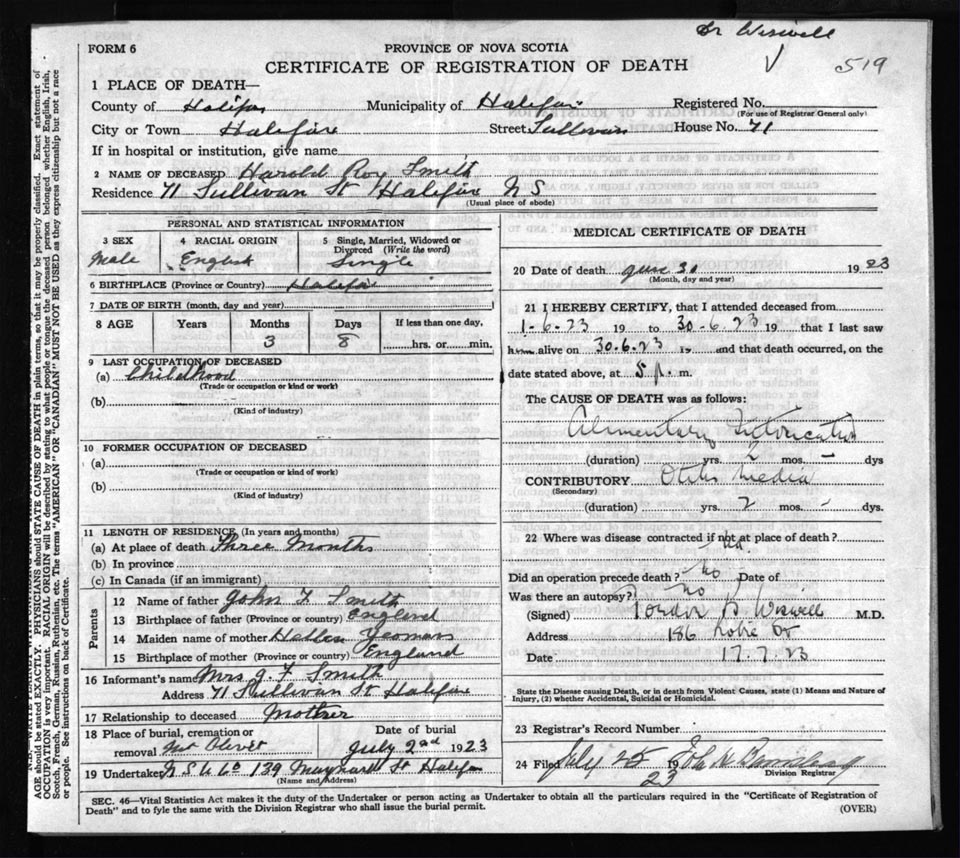 Dr Wiswell
FORM 6
PROVINCE OF NOVA SCOTIA
519
CERTIFICATE OF REGISTRATION OF DEATH
1 PLACE OF DEATH—
County of Halifax Municipality of Halifax Registered No.
(For use of Registrar General only)
City or Town Halifax Street Sullivan House No. 71
If in hospital or institution, give name
2 NAME OF DECEASED Harold Roy Smith
Residence 71 Sullivan St Halifax N S
(Usual place of abode)
PERSONAL AND STATISTICAL INFORMATION
3 SEX 4 RACIAL ORIGIN 5 Single, Married, Widowed or Divorced (Write the word)
Male English Single
6 BIRTHPLACE (Province or Country) Halifax
7 DATE OF BIRTH (month, day and year)
8 AGE Years Months Days If less than one day,
3 8 hrs. or min.
9 LAST OCCUPATION OF DECEASED
(a) Childhood
(Trade or occupation or kind of work)
(b)
(Kind of industry)
10 FORMER OCCUPATION OF DECEASED
(a)
(Trade or occupation or kind of work)
(b)
(Kind of industry)
11 LENGTH OF RESIDENCE (In years and months)
(a) At place of death Three Months
(b) In province
(c) In Canada (if an immigrant)
Parents
12 Name of father John F Smith
13 Birthplace of father (Province or country) England
14 Maiden name of mother Hellen Yeomans
15 Birthplace of mother (Province or country) England
16 Informant's name Mrs J. F Smith
Address 71 Sullivan St Halifax
17 Relationship to deceased Mother
18 Place of burial, cremation or removal Mt Olivet Date of burial July 2nd 1923
19 Undertaker N S U Co 139 Maynard St Halifax
(Name and address)
MEDICAL CERTIFICATE OF DEATH
20 Date of death June 30 1923
(Month, day and year)
21 I HEREBY CERTIFY, that I attended deceased from
1-6-23 19 to 30-6-23 19 that I last saw
him alive on 30.6.23 19 and that death occurred, on the
date stated above, at 5 p. m.
The CAUSE OF DEATH was as follows:
Alimentary Intoxication
(duration) yrs. – mos. – dys
CONTRIBUTORY Otitis Media
(Secondary)
(duration) yrs. 2 mos. – dys.
22 Where was disease contracted if not at place of death?
Did an operation precede death? No Date of
Was there an autopsy? No
(Signed) Wiswell M.D.
Address 186 Robie St
Date 17.7.23
State the Disease causing Death, or in death from Violent Causes, state (1) Means and Nature of
Injury, (2) whether Accidental, Suicidal or Homicidal.
23 Registrar's Record Number
24 Filed July 25 1923
Division Registrar
SEC. 46—Vital Statistics Act makes it the duty of the Undertaker or person acting as Undertaker to obtain all the particulars required in the "Certificate of Registration of
Death" and to fyle the same with the Division Registrar who shall issue the burial permit. (OVER)
AGE should be stated EXACTLY. PHYSICIANS should STATE CAUSE OF DEATH in plain terms, so that it may be properly classified. Exact statement of
OCCUPATION is very important. RACIAL ORIGIN will be described by stating to what people or tongue the deceased person belonged whether English, Irish,
Scotch, French, German, Russian, Ruthenian, etc. The terms "AMERICAN" OR "CANADIAN" MUST NOT BE USED as they express citizenship but not a race
or people. See instructions on back of Certificate.